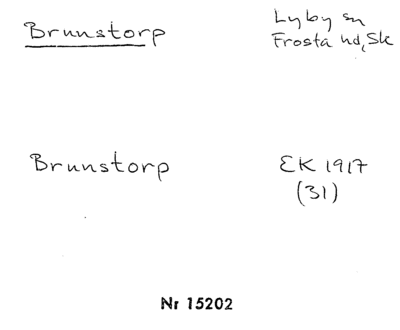 Brunstorp
Lyby sn
Frosta hd, Sk
Brunstorp
EK 1917
(31)
Nr 15202